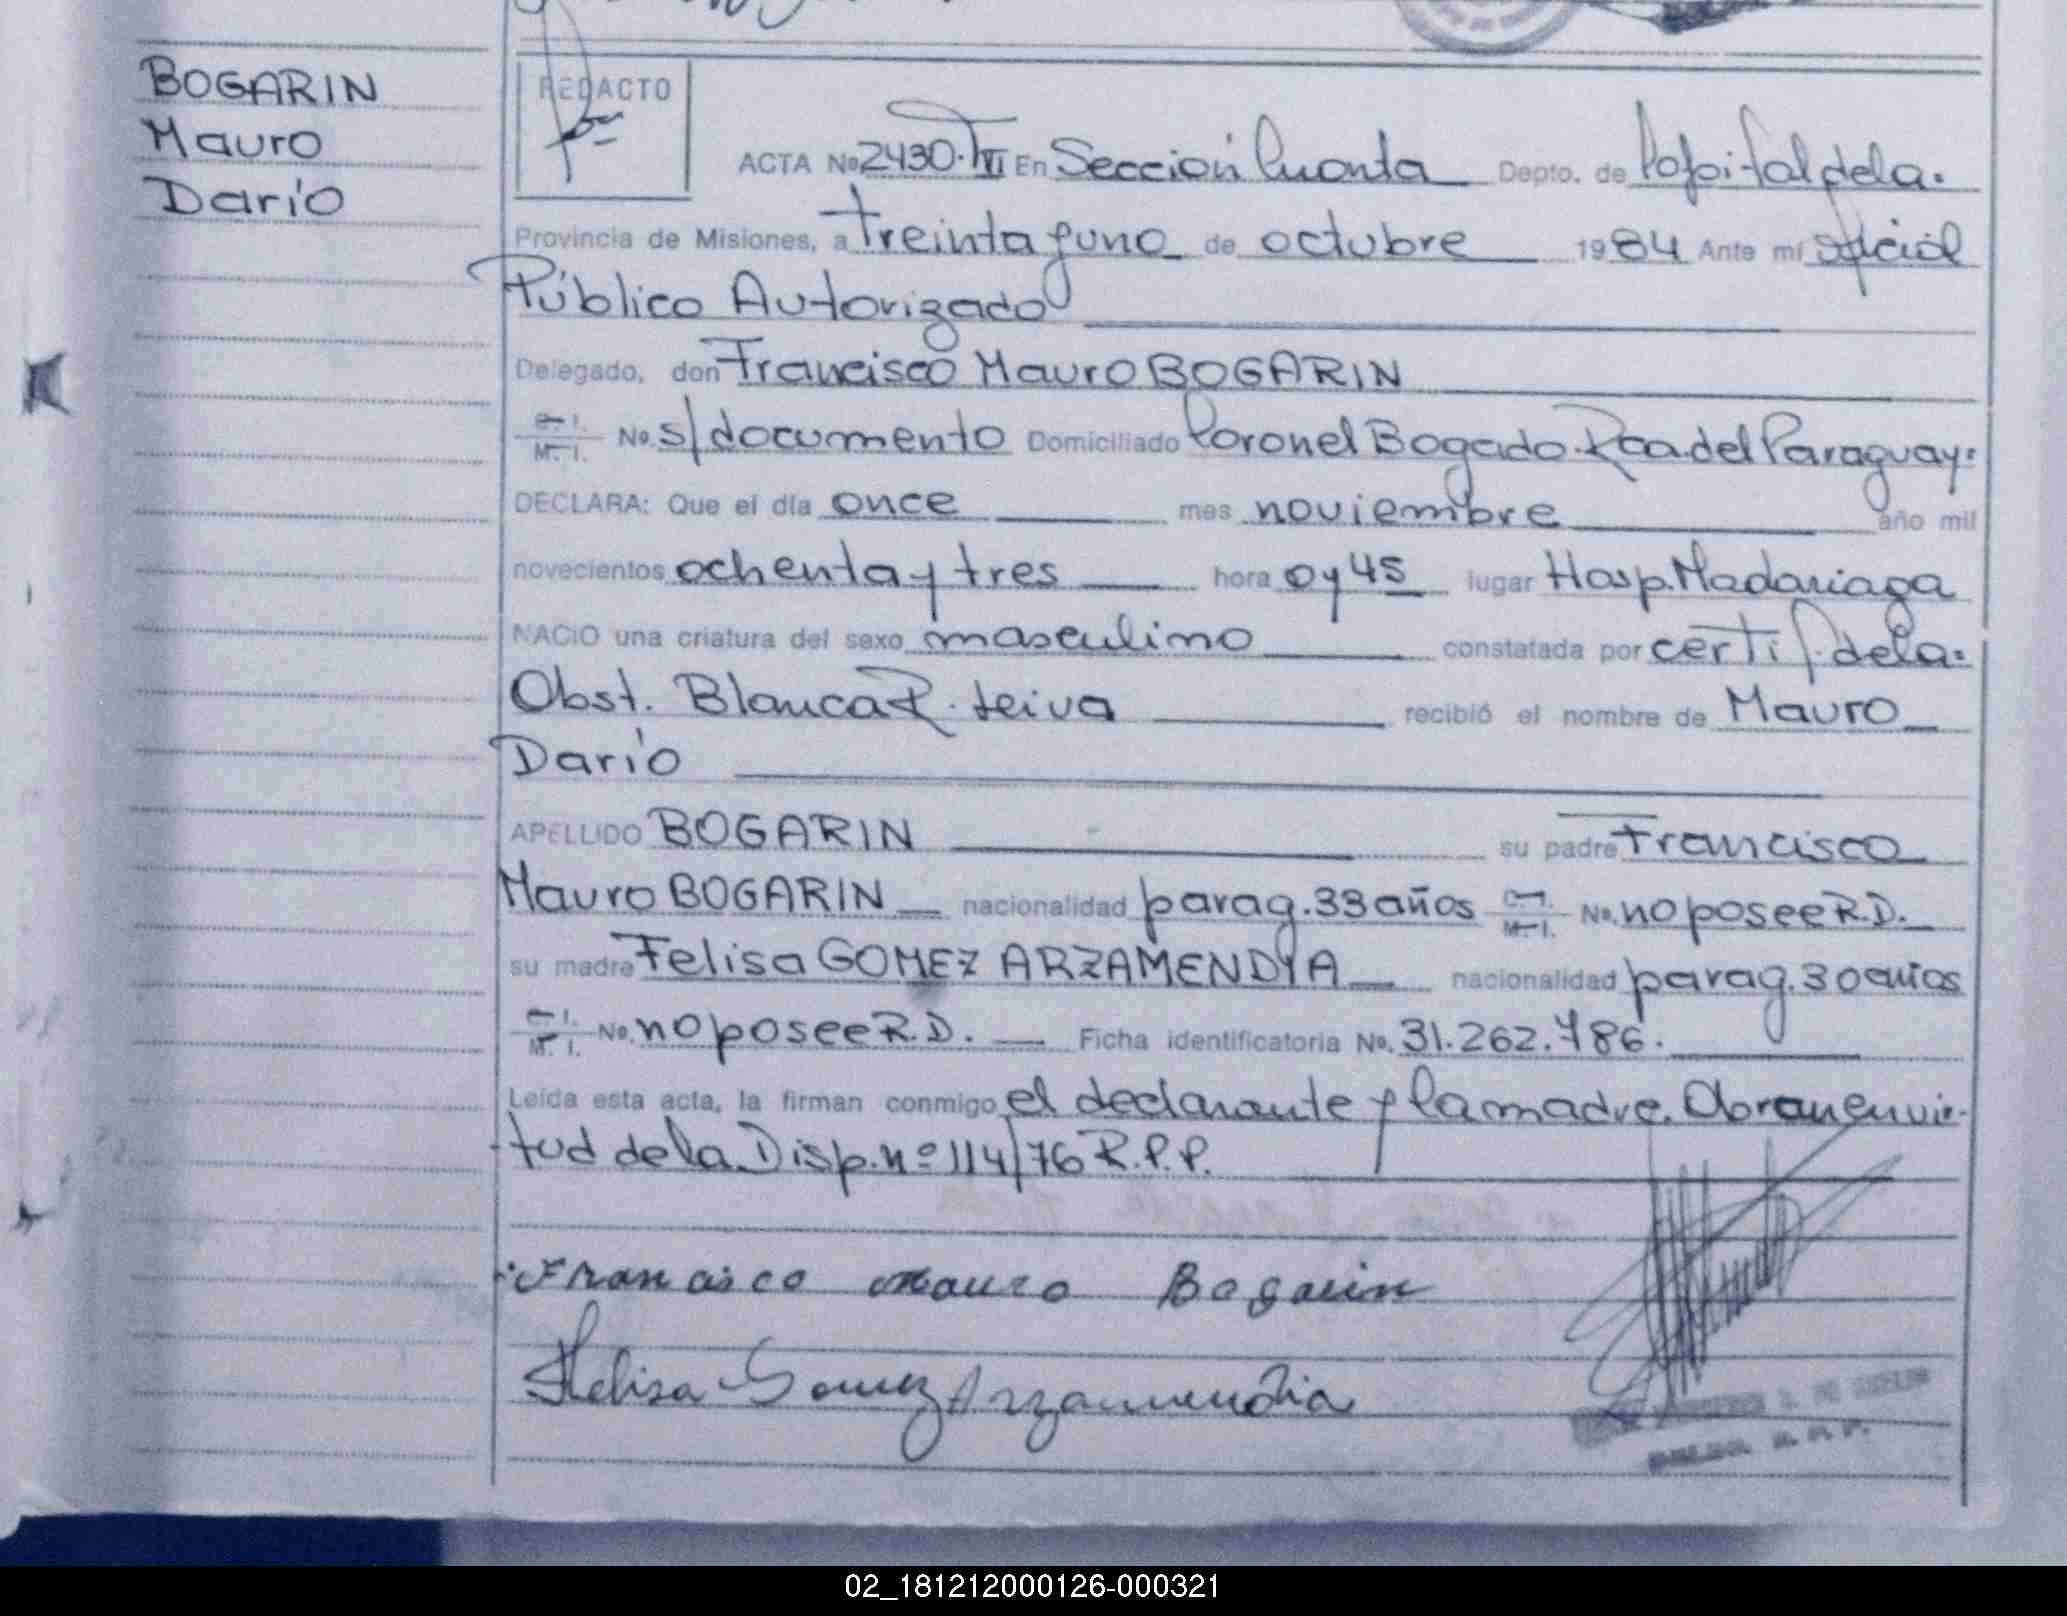 BOGARIN
Mauro
Darío
REDACTO
ACTA No 2430. T VI En Sección Cuarta Depto. de Capital de la.
Provincia de Misiones, a treinta y uno de octubre 1984 Ante mí oficial
Público Autorizado
Delegado, don Francisco Mauro BOGARIN
C. I. M. I. No. s/documento Domiciliado Coronel Bogado. Rca. del Paraguay.
DECLARA: Que el día once mes noviembre año mil
novecientos ochenta y tres hora 0 y 45 lugar Hosp. Madariaga
NACIO una criatura del sexo masculino constatada por certif. de la.
Obst. Blanca R. Leiva recibió el nombre de Mauro
Darío
APELLIDO BOGARIN su padre Francisco
Mauro BOGARIN nacionalidad parag. 33 años C. I. M. I. No. no posee R.D.
su madre Felisa GOMEZ ARZAMENDIA nacionalidad parag. 30 años
C. I. M. I. No. no posee R.D. Ficha identificatoria No. 31.262.786.
Leída esta acta, la firman conmigo el declarante y la madre. Obran en vir-
tud de la Disp. nº 114/76 R.P.P.
Francisco Mauro Bogarin
Felisa Gomez Arzamendia
02_181212000126-000321